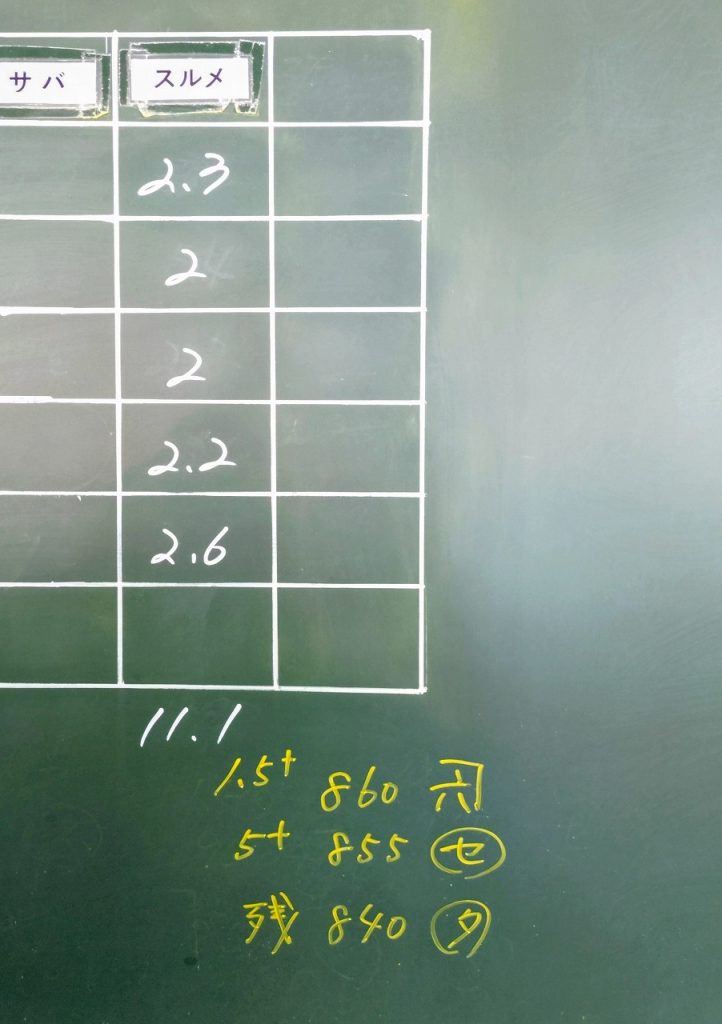 サバ スルメ
2.3
2
2
2.2
2.6
11.1
1.5t 860
5t 855 セ
残 840 タ